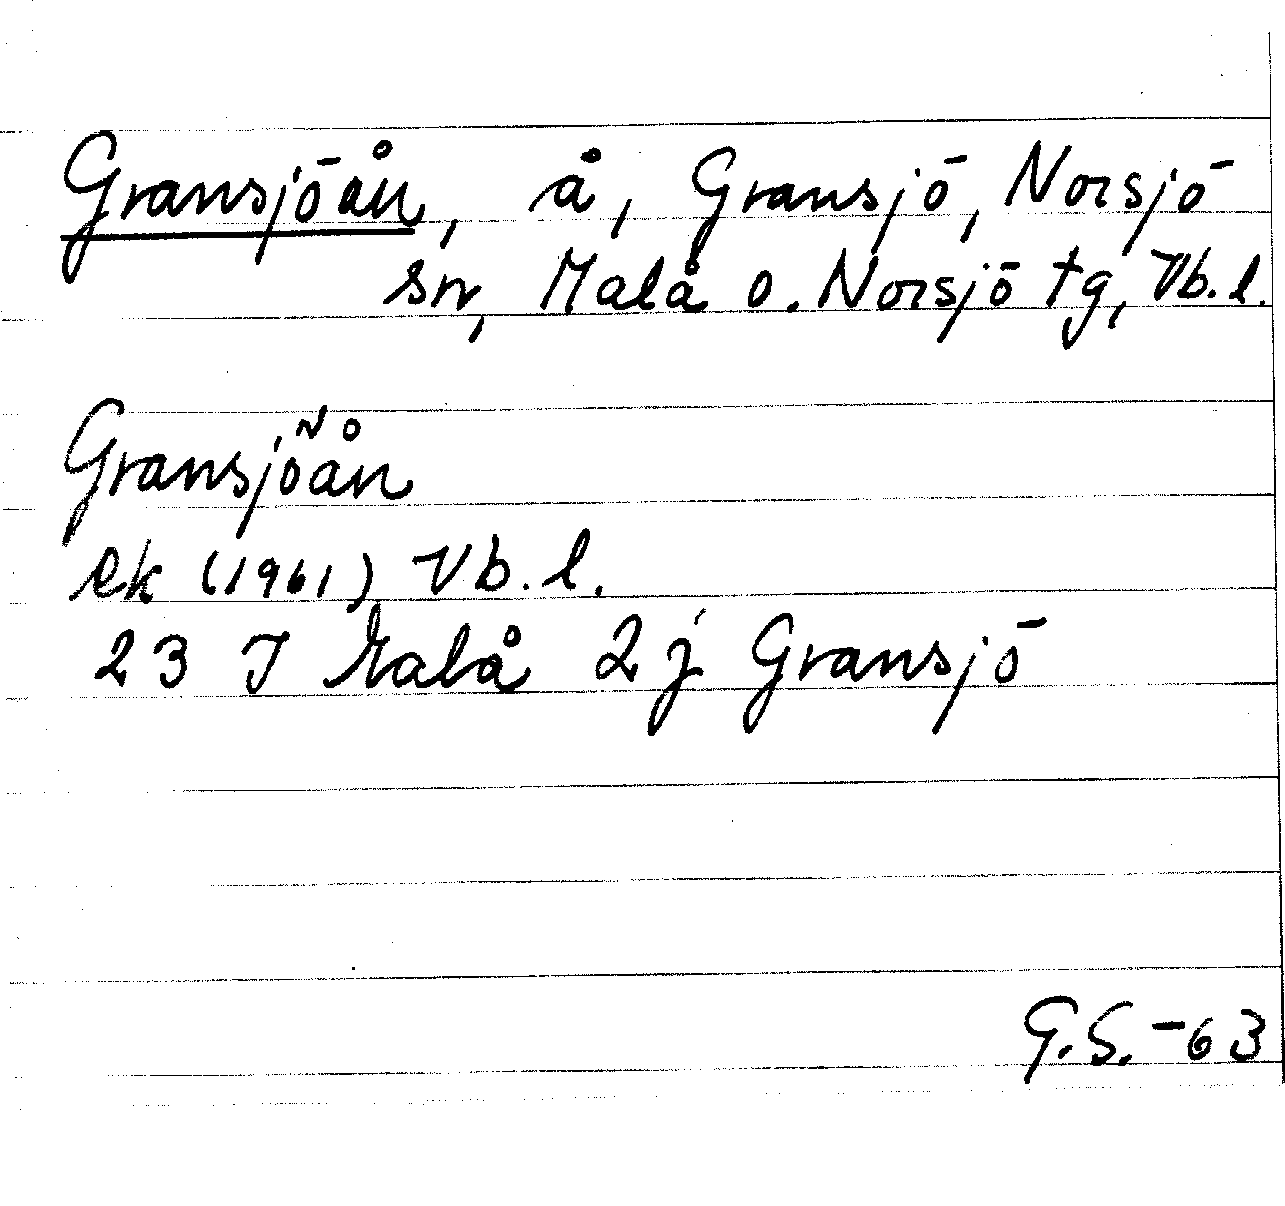 Gransjöån, å, Gransjö, Norsjö
sn, Malå o. Norsjö tg, Vb. l.
Gransjöån
ek (1961) Vb. l.
23 I Malå 2j Gransjö
G.S. -63